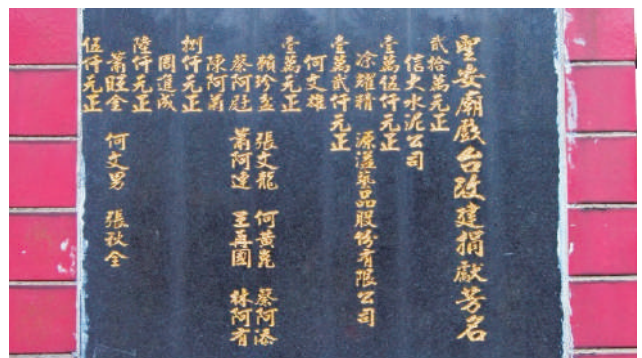 聖安廟戲台改建捐獻芳名
貳拾萬元正
信大水泥公司
壹萬伍仟元正
凃耀精 源滋藥品股份有限公司
壹萬貳仟元正
何文雄
壹萬元正
賴珍孟 張文龍 何黃堯 蔡阿添
蔡阿廷 蕭阿達 王再國 林阿有
陳阿菊
捌仟元正
周進成
陸仟元正
蕭旺全 何文男 張秋全
伍仟元正